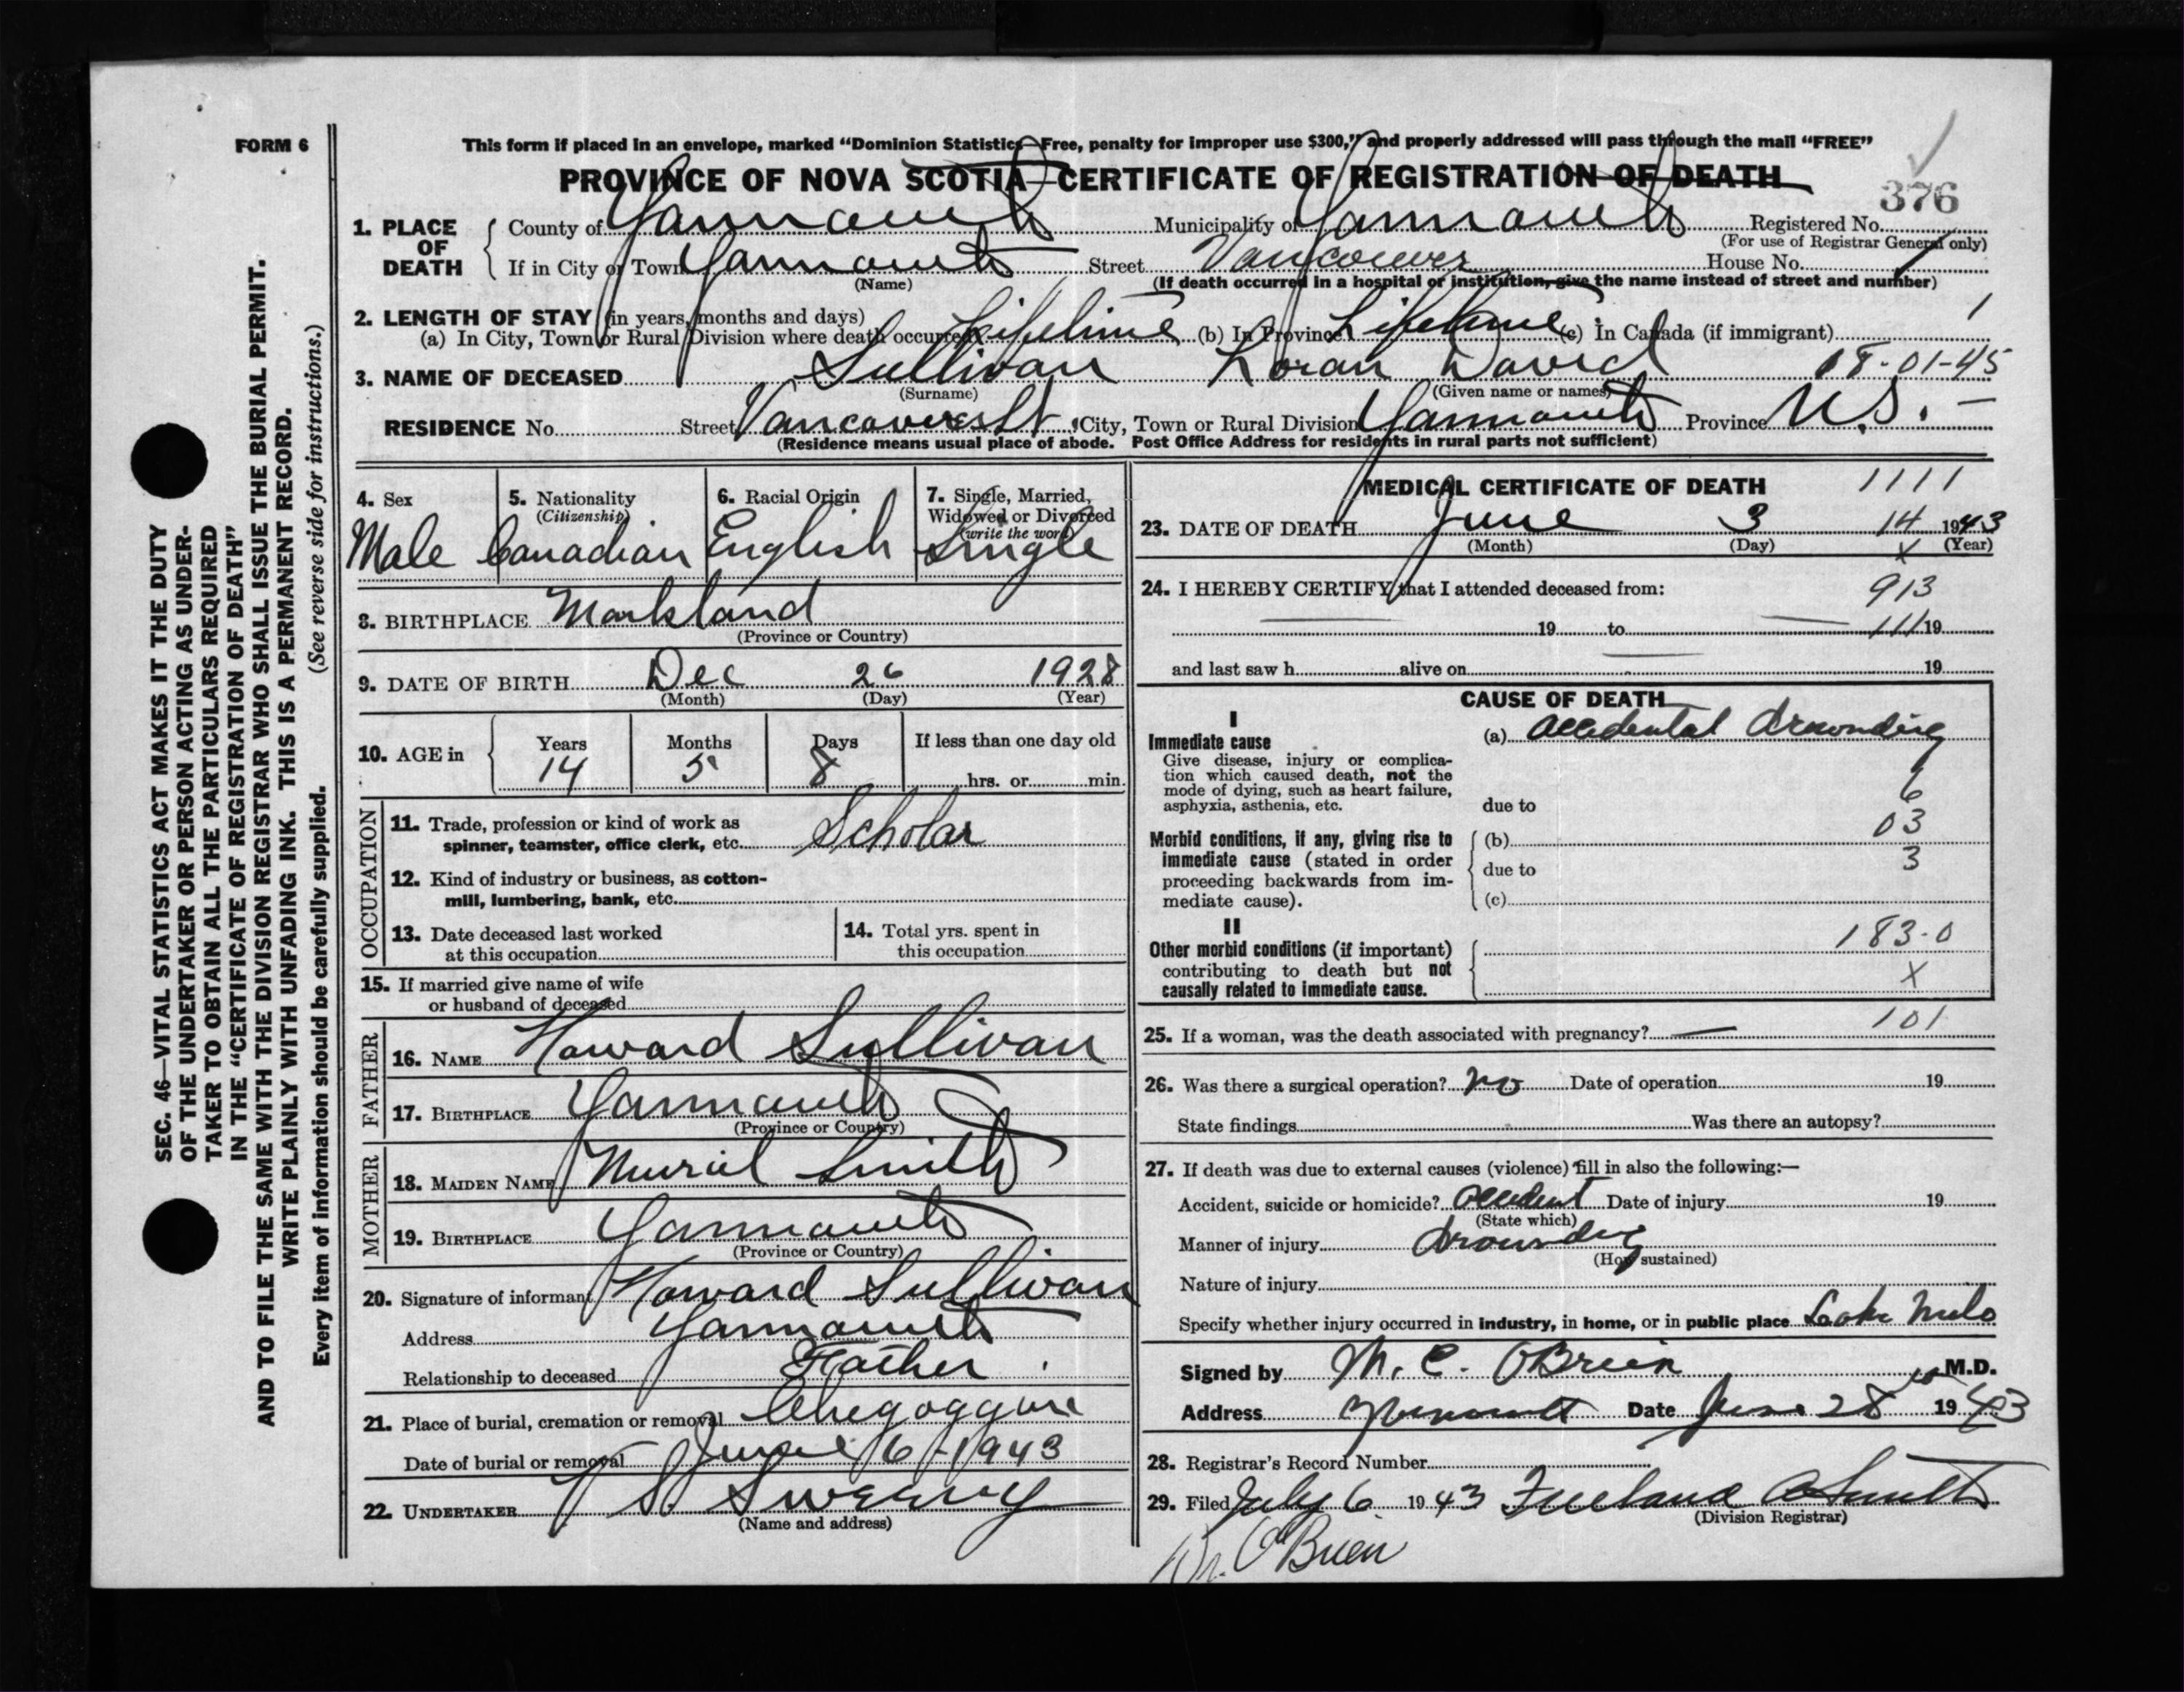 FORM 6
This form if placed in an envelope, marked “Dominion Statistics—Free, penalty for improper use $300,” and properly addressed will pass through the mail “FREE”
PROVINCE OF NOVA SCOTIA—CERTIFICATE OF REGISTRATION OF DEATH
376
1. PLACE OF DEATH
County of Yarmouth Municipality of Yarmouth Registered No.
(For use of Registrar General only)
If in City or Town Yarmouth Street Vancouver House No.
(Name)
(If death occurred in a hospital or institution, give the name instead of street and number)
2. LENGTH OF STAY (in years, months and days) 1
(a) In City, Town or Rural Division where death occurred Lifetime (b) In Province Lifetime (c) In Canada (if immigrant)
3. NAME OF DECEASED Sullivan Loran David 18-01-45
(Surname) (Given name or names)
RESIDENCE No. Street Vancouver St City, Town or Rural Division Yarmouth Province N.S. -
(Residence means usual place of abode. Post Office Address for residents in rural parts not sufficient)
4. Sex Male
5. Nationality (Citizenship) Canadian
6. Racial Origin English
7. Single, Married, Widowed or Divorced (write the word) Single
8. BIRTHPLACE Markland
(Province or Country)
9. DATE OF BIRTH Dec 26 1928
(Month) (Day) (Year)
10. AGE in Years 14 Months 5 Days 8 If less than one day old
hrs. or min.
OCCUPATION
11. Trade, profession or kind of work as
spinner, teamster, office clerk, etc. Scholar
12. Kind of industry or business, as cotton-
mill, lumbering, bank, etc.
13. Date deceased last worked
at this occupation
14. Total yrs. spent in
this occupation
15. If married give name of wife
or husband of deceased
FATHER
16. NAME Howard Sullivan
17. BIRTHPLACE Yarmouth
(Province or Country)
MOTHER
18. MAIDEN NAME Muriel Smith
19. BIRTHPLACE Yarmouth
(Province or Country)
20. Signature of informant Howard Sullivan
Address Yarmouth
Relationship to deceased Father
21. Place of burial, cremation or removal Chegoggin
Date of burial or removal June 6 - 1943
22. UNDERTAKER V S. Sweeny
(Name and address)
MEDICAL CERTIFICATE OF DEATH 1111
23. DATE OF DEATH June 3 14 1943
(Month) (Day) X (Year)
24. I HEREBY CERTIFY that I attended deceased from: 913
19 to 111 19
and last saw h alive on 19
CAUSE OF DEATH
I
Immediate cause
Give disease, injury or complica-
tion which caused death, not the
mode of dying, such as heart failure,
asphyxia, asthenia, etc.
(a) Accidental drownding
6
due to
03
Morbid conditions, if any, giving rise to
immediate cause (stated in order
proceeding backwards from im-
mediate cause).
(b)
3
due to
(c)
II
Other morbid conditions (if important)
contributing to death but not
causally related to immediate cause.
183-0
X
25. If a woman, was the death associated with pregnancy? — 101
26. Was there a surgical operation? no Date of operation 19
State findings Was there an autopsy?
27. If death was due to external causes (violence) fill in also the following:—
Accident, suicide or homicide? Accident Date of injury 19
(State which)
Manner of injury drownding
(How sustained)
Nature of injury
Specify whether injury occurred in industry, in home, or in public place Lake Milo
Signed by M. C. O'Brien M.D.
Address Yarmouth Date June 28 1943
28. Registrar's Record Number
29. Filed July 6 1943 Freeland A Smith
(Division Registrar)
Dr. O'Brien
SEC. 46—VITAL STATISTICS ACT MAKES IT THE DUTY
OF THE UNDERTAKER OR PERSON ACTING AS UNDER-
TAKER TO OBTAIN ALL THE PARTICULARS REQUIRED
IN THE “CERTIFICATE OF REGISTRATION OF DEATH”
AND TO FILE THE SAME WITH THE DIVISION REGISTRAR WHO SHALL ISSUE THE BURIAL PERMIT.
WRITE PLAINLY WITH UNFADING INK. THIS IS A PERMANENT RECORD.
Every item of information should be carefully supplied. (See reverse side for instructions.)